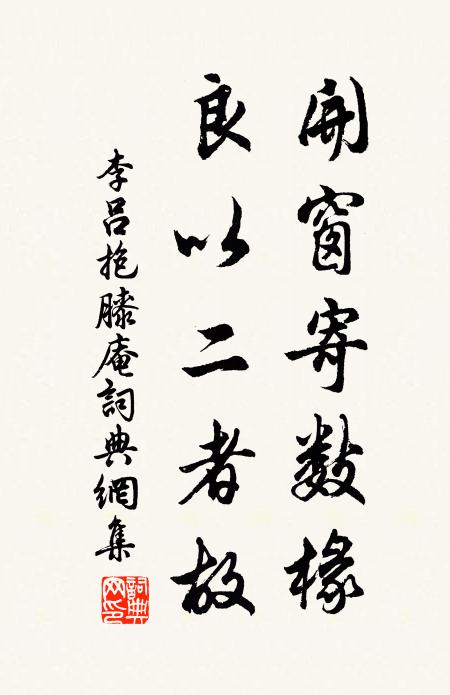 開窗寄數椽
良以二者故
李呂抱膝庵詞典網集
詞典网印